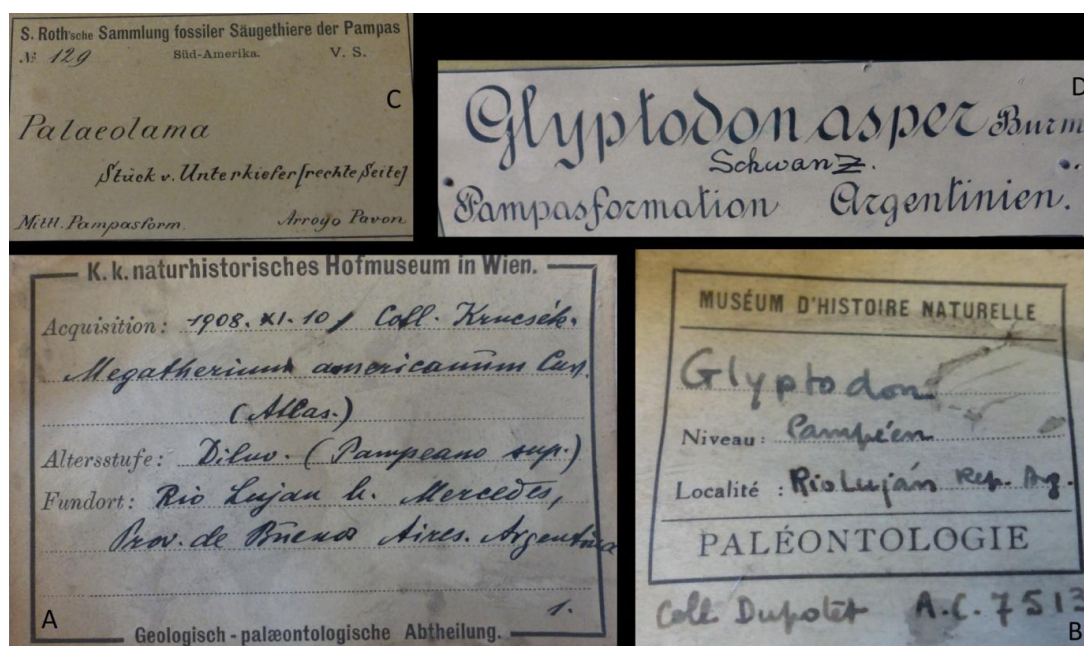 S. Roth'sche Sammlung fossiler Säugethiere der Pampas
№ 129 Süd-Amerika. V. S.
C
Palaeolama
Stück v. Unterkiefer [rechte Seite]
Mittl. Pampasform. Arroyo Pavon
D
Glyptodon asper Burm
Schwanz.
Pampasformation Argentinien.
K. k. naturhistorisches Hofmuseum in Wien.
Acquisition: 1908. XI. 10, Coll. Krucsék.
Megatherium americanum Cuv.
(Atlas.)
Altersstufe: Diluv. (Pampeano sup.)
Fundort: Rio Lujan b. Mercedes,
Prov. de Buenos Aires. Argentina
1.
A
Geologisch-palæontologische Abtheilung.
MUSÉUM D'HISTOIRE NATURELLE
Glyptodon
Niveau: Pampéen
Localité: Rio Luján Rep. Arg.
PALÉONTOLOGIE
Coll. Dupotet A.C. 7513
B